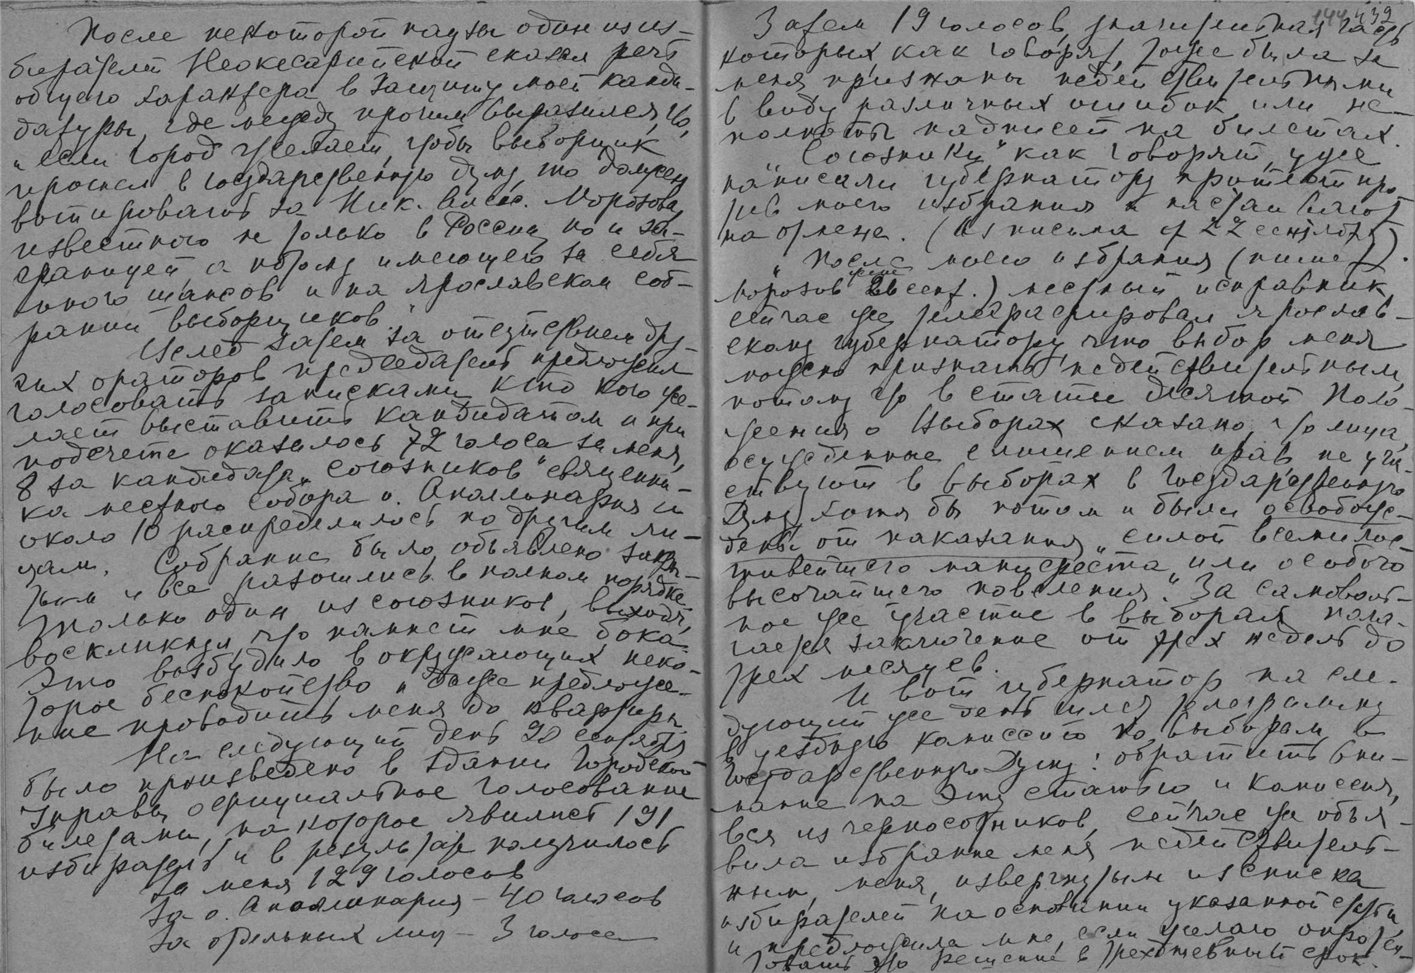 После некоторой паузы один из из-
бирателей Неокесарийский сказал речь
общего характера в защиту моей канди-
датуры, где между прочим выразился, что
„если город желает, чтобы выборщик
прошел в Государственную думу, то должен
вотировать за Ник. Алекс. Морозова,
известного не только в России, но и за-
границей, а потому имеющего за себя
много шансов и на Ярославском соб-
рании выборщиков."
Вслед затем за отсутствием дру-
гих ораторов председатель предложил
голосовать записками, кто кого же-
лает выставить кандидатом и при
подсчете оказалось 72 голоса за меня,
8 за кандидата „союзников" священни-
ка местного собора о. Аполлинария и
около 10 распределилось по другим ли-
цам. Собрание было объявлено закры-
тым и все разошлись в полном порядке,
только один из союзников, выходя,
воскликнул что намнет мне бока.
Это возбудило в окружающих неко-
торое беспокойство и даже предложе-
ние проводить меня до квартиры.
На следующий день 20 сентября
было произведено в здании Городской
Управы официальное голосование
билетами, на которое явилист 191
избиратель и в результате получилось
за меня 129 голосов
За о. Аполлинария – 40 голосов
За отдельных лиц – 3 голоса
144 439
Затем 19 голосов, значительная часть
которых как говорят, тоже была за
меня признаны недействительными
в виду различных ошибок или не-
полноты надписей на билетах.
„Союзники" как говорят, уже
написали губернатору протест про-
тив моего избрания и настаивают
на отмене. (Из письма от 22 сентября).
„После моего избрания (пишет
Морозов сент.) местный исправник
сейчас же телеграфировал Ярослав-
скому губернатору что выбор меня
можно признать недействительным,
потому что в статье десятой Поло-
жения о Выборах сказано, что лица,
осужденные с лишением прав не уча-
ствуют в выборах в Государственную
Думу, хотя бы потом и были освобож-
дены от наказания „силой всемилос-
тивейшего манифеста или особого
высочайшего повеления." За самоволь-
ное же участие в выборах пола-
гается заключение от трех недель до
трех месяцев.
И вот губернатор на сле-
дующий же день шлет телеграмму
в уездную комиссию по выборам в
Государственную Думу: обратить вни-
мание на эту статью и комиссия,
вся из черносотников, сейчас же объя-
вила избрание меня недействитель-
ным, меня, извергнутым из списка
избирателей на основании указанной статьи,
и предложила мне, если желаю опротес-
товать это решение в трехдневный срок.